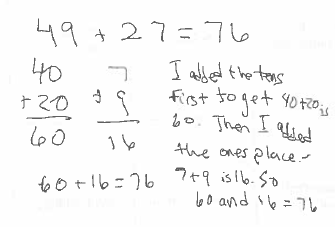 49 + 27 = 76
40
+ 20
60
7
+ 9
16
60 + 16 = 76
I added the tens
first to get 40+20 is
60. Then I added
the ones place -
7+9 is 16. So
60 and 16 = 76